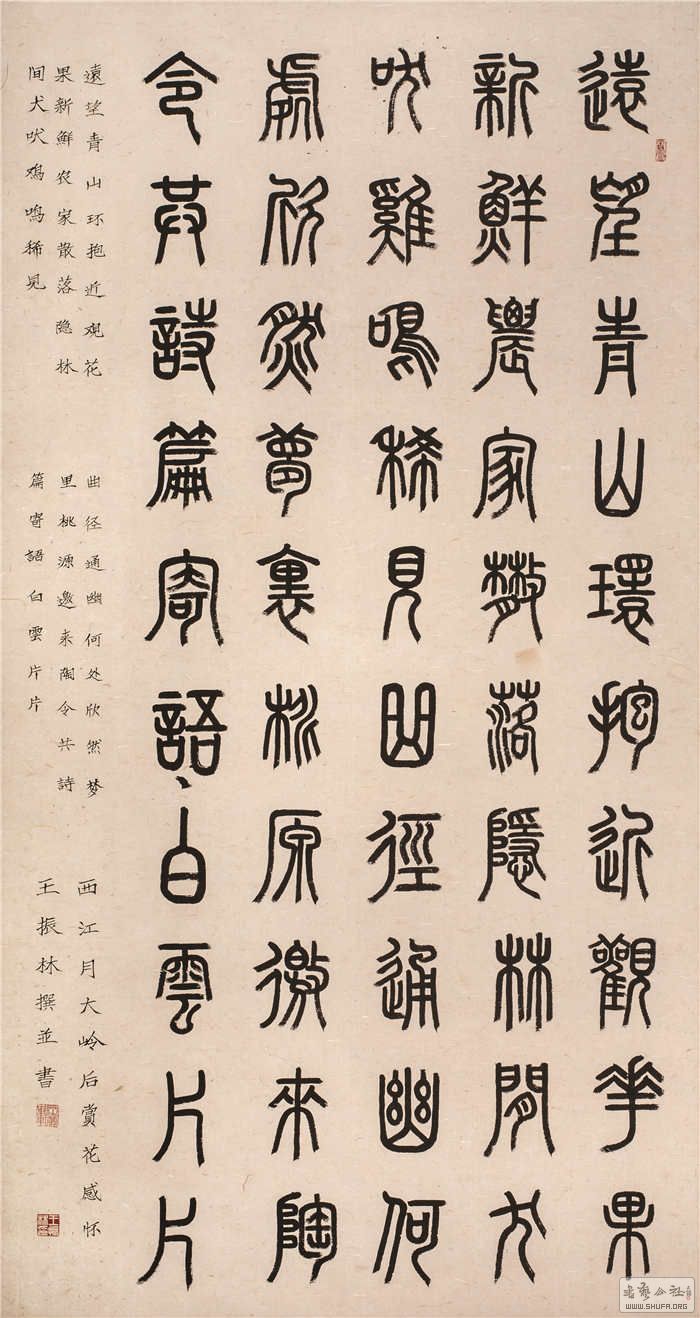 遠望青山環抱近觀華果
新鮮農家散落隱林間犬
吠雞鳴稀見曲徑通幽何
處欣然夢裏桃原邀來陶
令共詩篇寄語白雲片片
遠望青山环抱近观花
果新鲜农家散落隐林
间犬吠鸡鸣稀见
曲径通幽何处欣然梦
里桃源邀来陶令共詩
篇寄語白雲片片
西江月大岭后赏花感怀
王振林撰並書
WWW.SHUFA.ORG